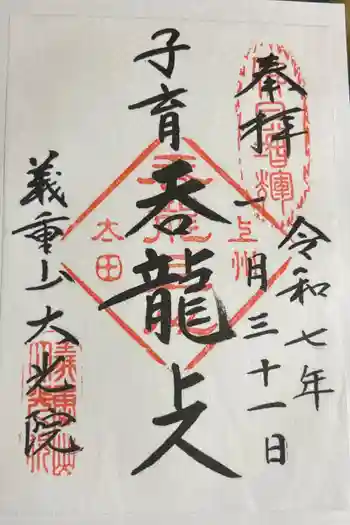 奉拝
令和七年
一月三十一日
子育
呑龍上人
上州
太田
義重山大光院